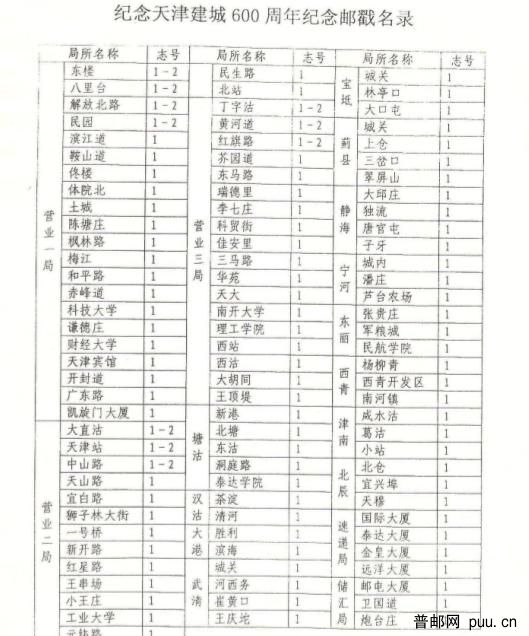 纪念天津建城 600 周年纪念邮戳名录
局所名称 志号 局所名称 志号 局所名称 志号
营业一局
东楼 1-2
八里台 1-2
解放北路 1-2
民园 1-2
滨江道 1
鞍山道 1
佟楼 1
体院北 1
土城 1
陈塘庄 1
枫林路 1
梅江 1
和平路 1
赤峰道 1
科技大学 1
谦德庄 1
财经大学 1
天津宾馆 1
开封道 1
广东路 1
凯旋门大厦 1
营业二局
大直沽 1-2
天津站 1-2
中山路 1-2
天山路 1
宜白路 1
狮子林大街 1
一号桥 1
新开路 1
红星路 1
王串场 1
小王庄 1
工业大学 1
元纬路
营业三局
民生路 1
北站 1
丁字沽 1-2
黄河道 1-2
红旗路 1-2
芥园道 1
东马路 1
瑞德里 1
李七庄 1
科贸街 1
佳安里 1
三马路 1
华苑 1
天大 1
南开大学 1
理工学院 1
西站 1
西沽 1
大胡同 1
王顶堤 1
塘沽
新港 1
北塘 1
东沽 1
洞庭路 1
泰达学院 1
汉沽
茶淀 1
清河 1
大港
胜利 1
滨海 1
武清
城关 1
河西务 1
崔黄口 1
王庆坨 1
宝坻
城关 1
林亭口 1
大口屯 1
蓟县
城关 1
上仓 1
三岔口 1
翠屏山 1
静海
大邱庄 1
独流 1
唐官屯 1
子牙 1
宁河
城内 1
潘庄 1
芦台农场 1
东丽
张贵庄 1
军粮城 1
民航学院 1
西青
杨柳青 1
西青开发区 1
南河镇 1
津南
咸水沽 1
葛沽 1
小站 1
北辰
北仓 1
宜兴埠 1
天穆 1
速递局
国际大厦 1
泰达大厦 1
金皇大厦 1
远洋大厦 1
储汇局
邮电大厦 1
卫国道 1
炮台庄 1
普邮网 puu.cn